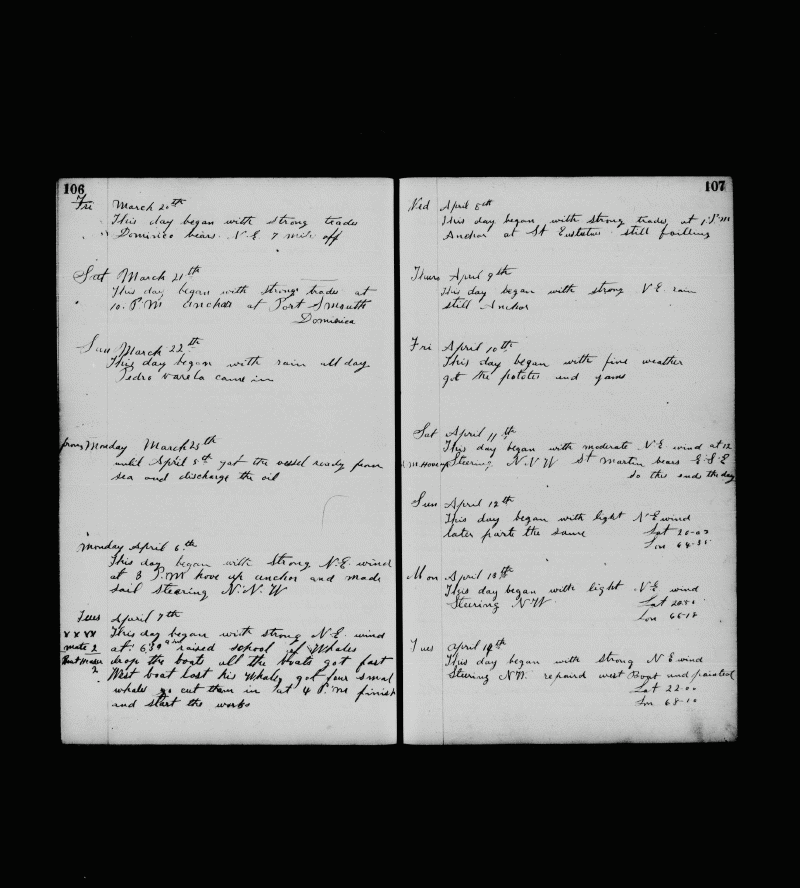 106
Fri March 20th
This day began with strong trades
Dominico bears N.E. 7 mile off
Sat March 21th
This day began with strong trades at
10. P.M anchor at Port Smouth
Dominica
Sun March 22th
This day began with rain all day
Pedro Varela came in
from Monday March 23th
until April 5th got the vessel ready for
sea and discharge the oil
Monday April 6.th
This day began with Strong N.E. wind
at 3 P.M hove up anchor and made
sail stearing N.N.W
Tues April 7th
x x x x This day began with strong N.E. wind
mate 2 at 6.30 raised school of Whales
Boat 2 drop the boats all the boats got fast
West boat Lost his Whale, got four small
whales cut them in at 4 P.M finish
and start the works
107
Wed April 8th
this day began with strong trades, at 1 P.M
Anchor at St Eustatus still
Thurs April 9th
this day began with strong N E. rain
still Anchor
Fri April 10th
This day began with fine weather
got the potates and yams
Sat April 11th
This day began with moderate N.E wind at 12
Steering N.N.W St Martin bears E.S.E
So this ends the day
Sun April 12th
This day began with light N E wind
later parts the same
Lat 20-02
Lon 64-35
Mon April 13th
This day began with light N E wind
Steering N W
Lat
Lon 66-12
Tues April 14th
This day began with strong N E wind
Steering N W. repaird west Boat and painted
Lat 22-00
Lon 68-10